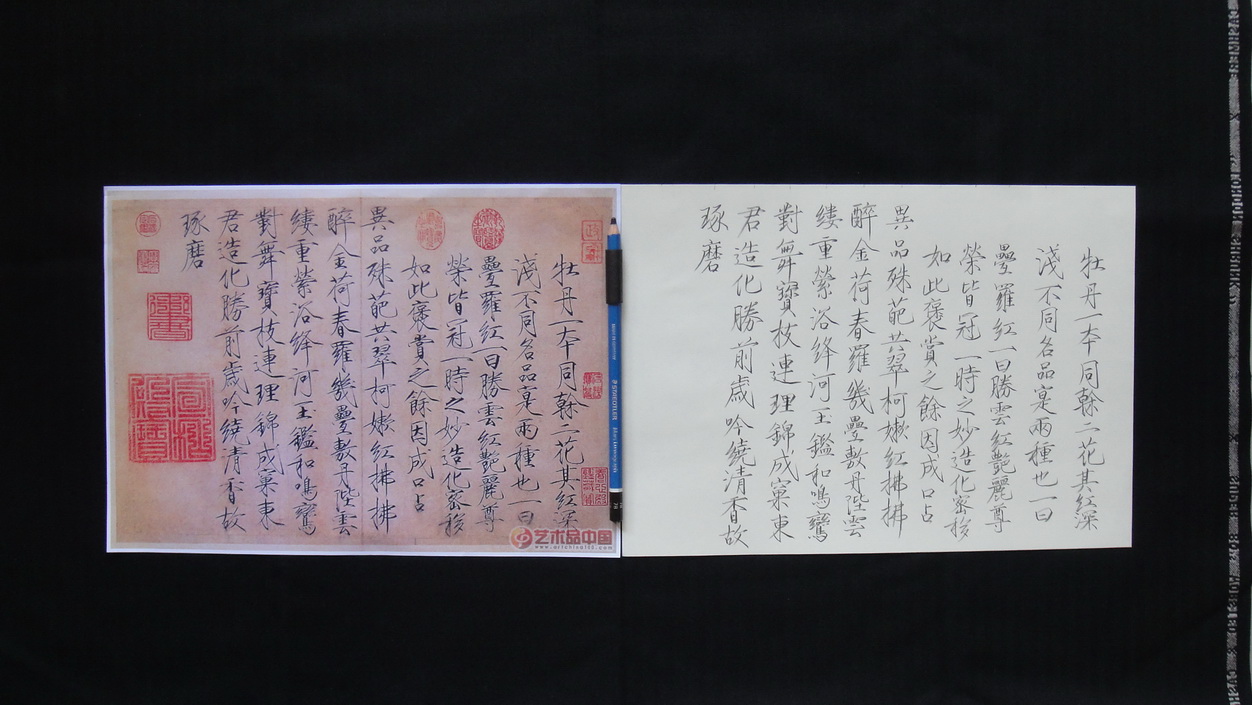 牡丹一本同幹二花其紅深
淺不同名品寔兩種也一曰
疊羅紅一曰勝雲紅艷麗尊
榮皆冠一時之妙造化密移
如此褒賞之餘因成口占
異品殊葩共翠柯嫩紅拂拂
醉金荷春羅幾疊敷丹陛雲
縷重縈浴絳河玉鑑和鳴鸞
對舞寶枝連理錦成窠東
君造化勝前歲吟繞清香故
琢磨
艺术品中国
STAEDTLER
牡丹一本同幹二花其紅深
淺不同名品寔兩種也一曰
疊羅紅一曰勝雲紅艷麗尊
榮皆冠一時之妙造化密移
如此褒賞之餘因成口占
異品殊葩共翠柯嫩紅拂拂
醉金荷春羅幾疊敷丹陛雲
縷重縈浴絳河玉鑑和鳴鸞
對舞寶枝連理錦成窠東
君造化勝前歲吟繞清香故
琢磨